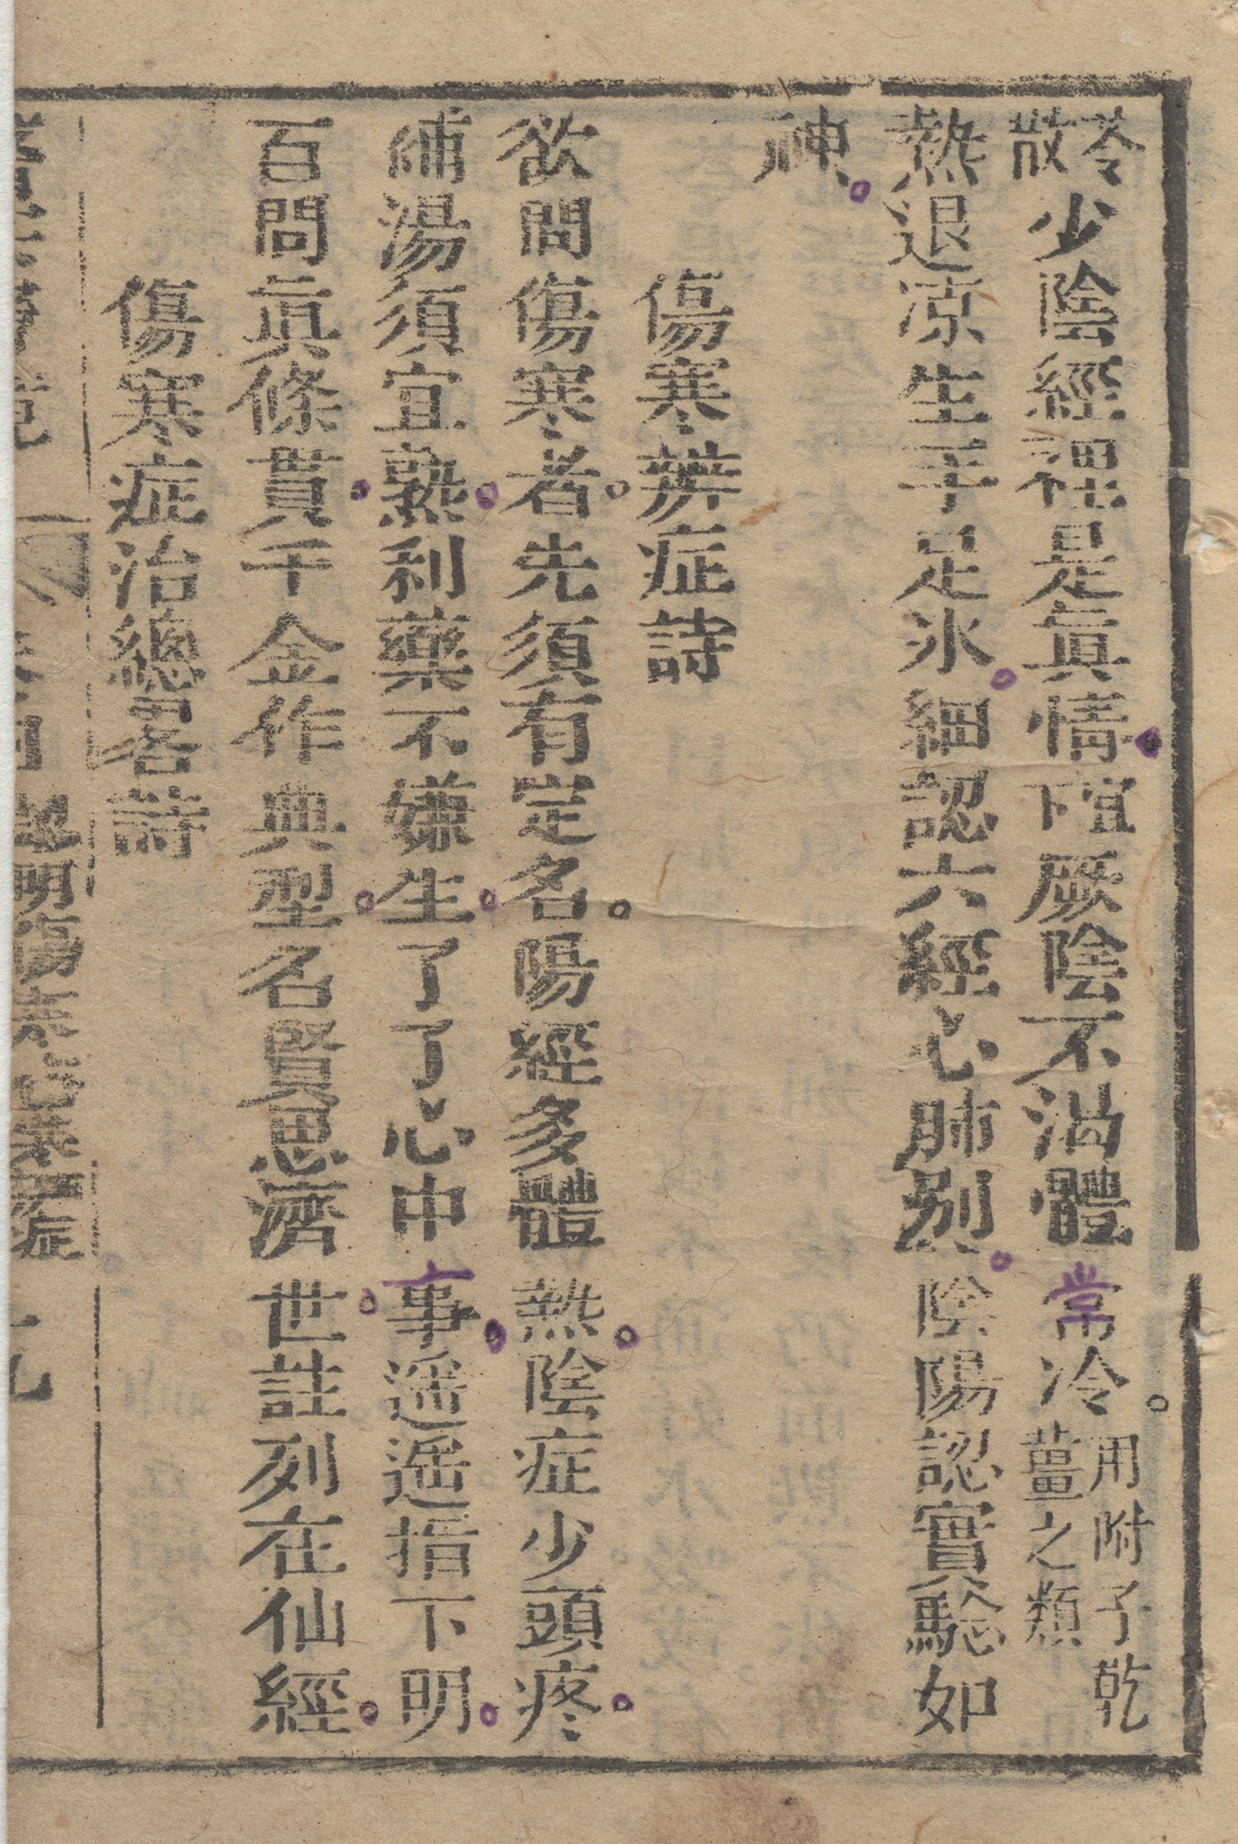 苓散少陰經裡是眞情宜下厥陰不渴體常冷用附子乾薑之類
熱退凉生手足氷細認六經心肺別陰陽認實騐如
神
傷寒辨症詩
欲問傷寒者先須有定名陽經多體熱陰症少頭疼
補湯須宜熟利藥不嫌生了了心中事遥遥指下明
百問眞條貫千金作典型名賢思濟世註列在仙經
傷寒症治總畧詩